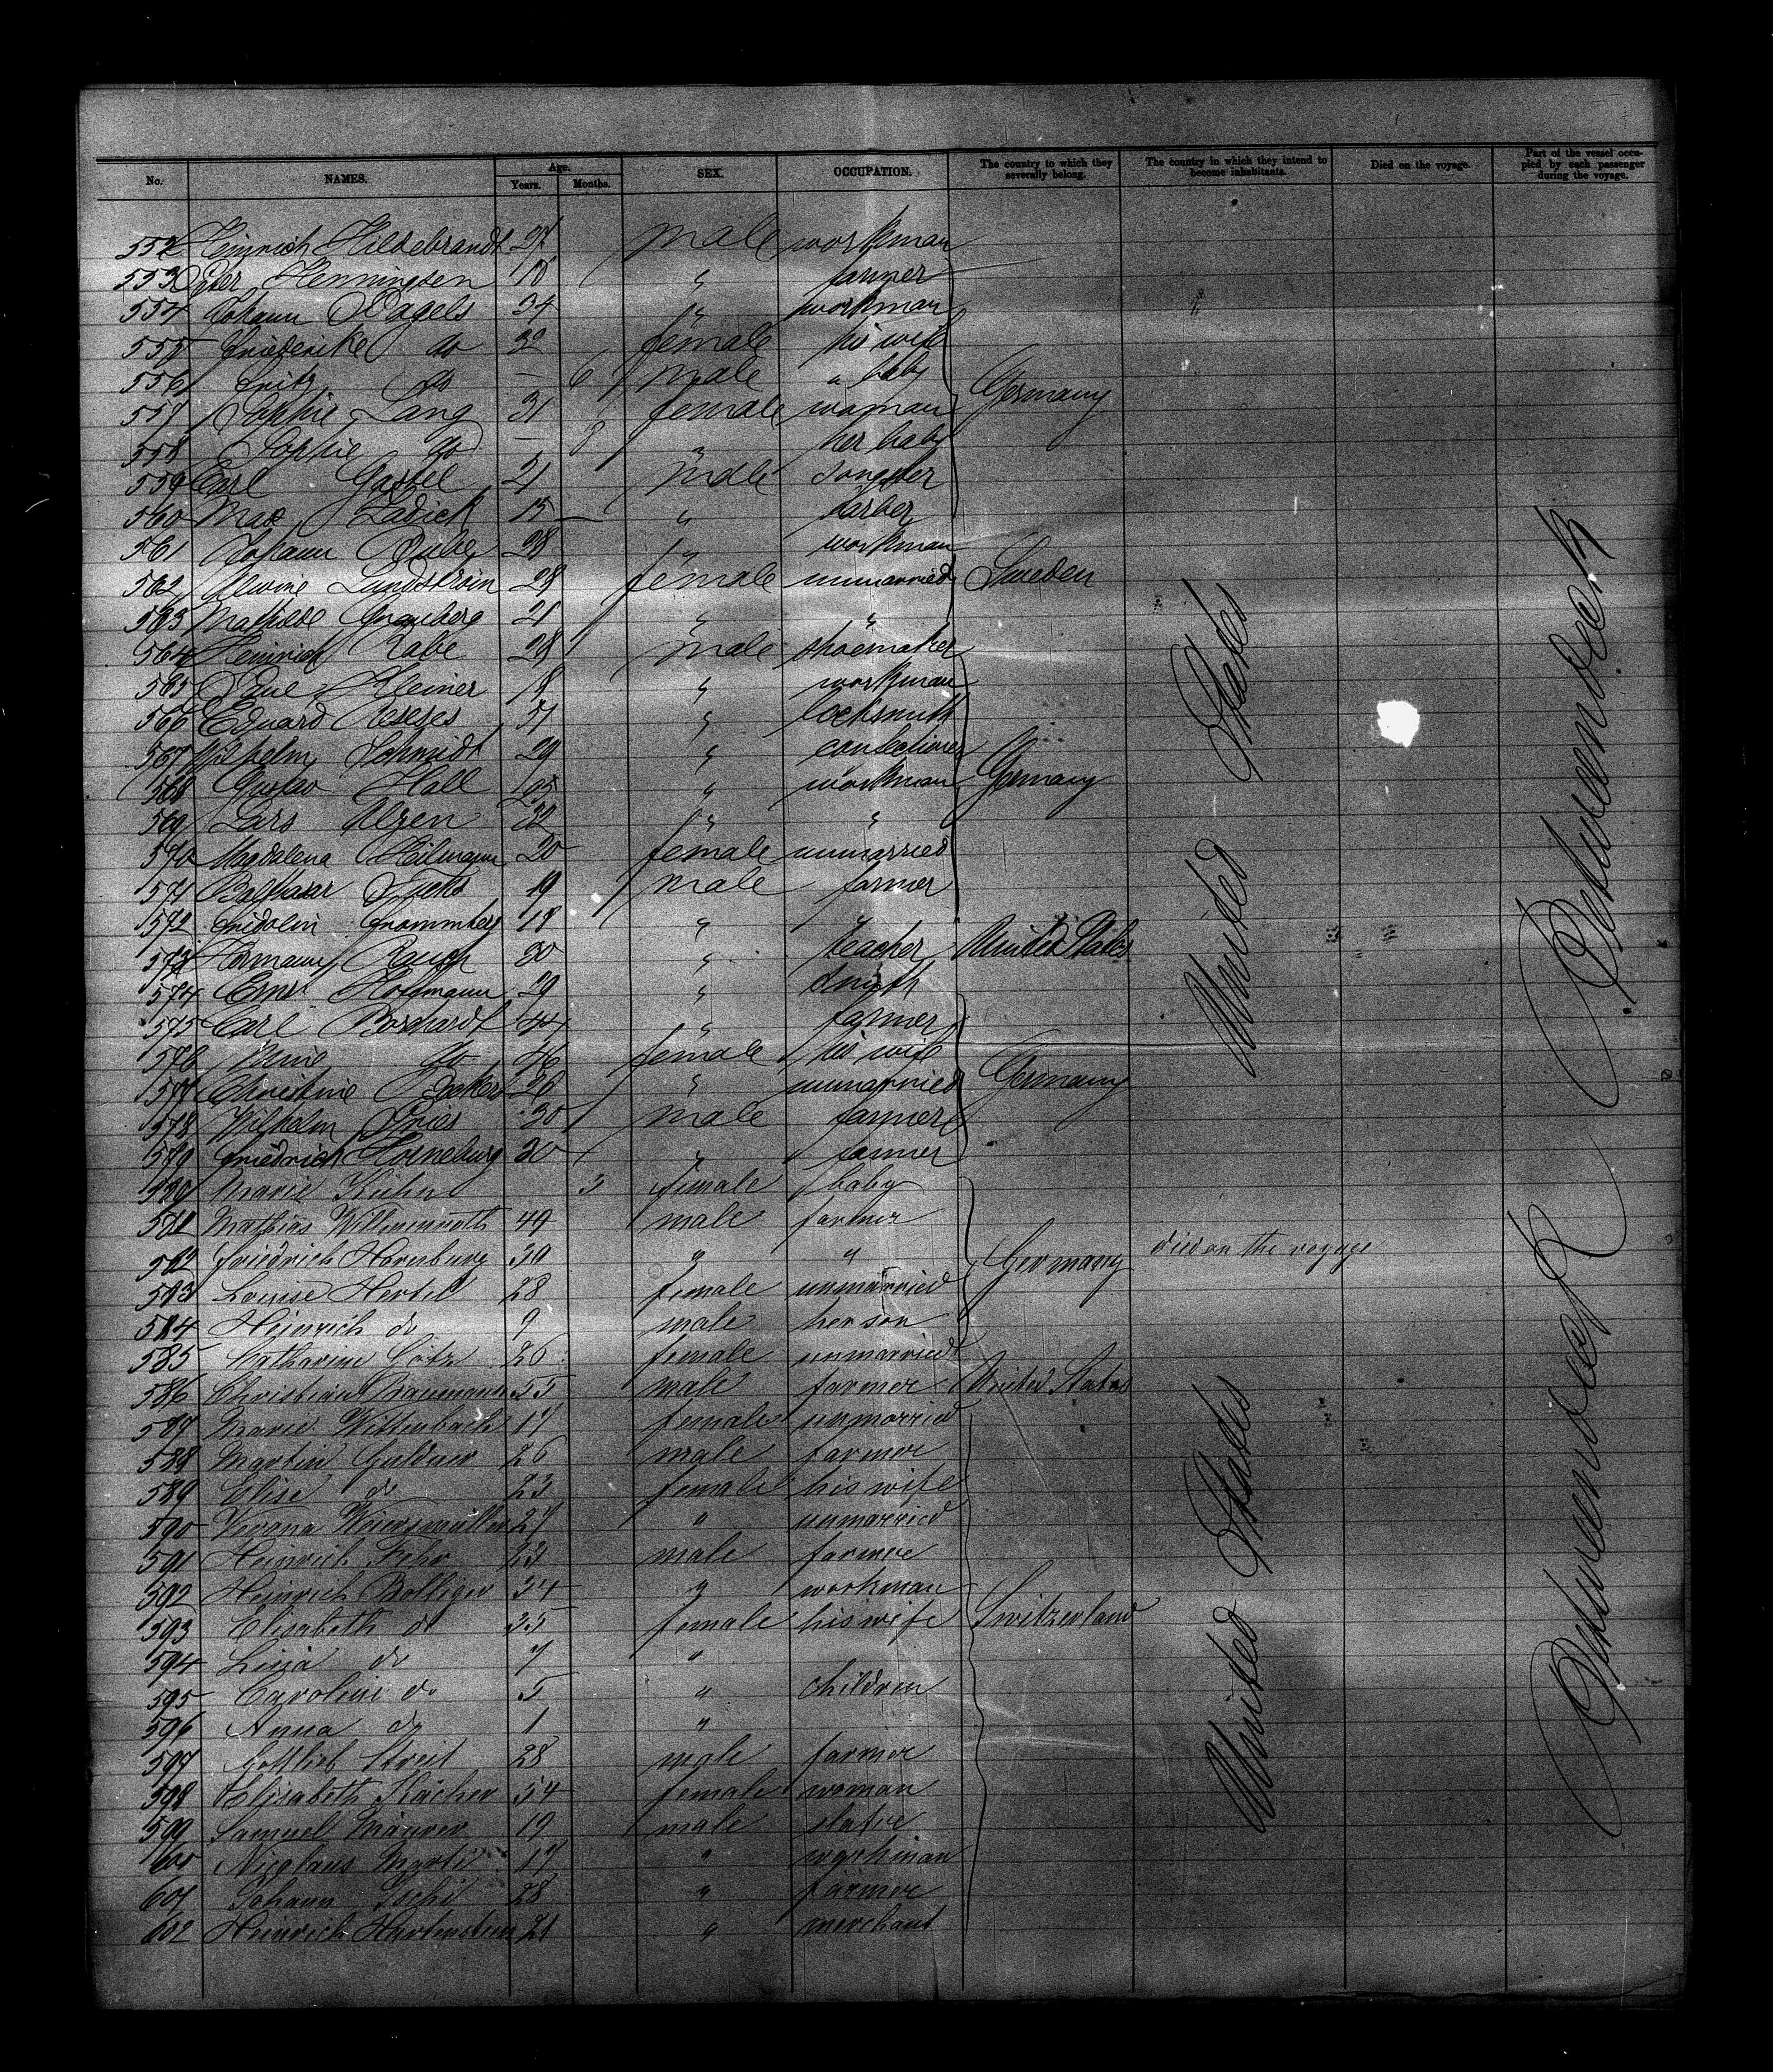 No. NAMES. Age. Years. Months. SEX. OCCUPATION. The country to which they severally belong. The country in which they intend to become inhabitants. Died on the voyage. Part of the vessel occupied by each passenger during the voyage.
552 Heinrich Hildebrandt 27 male workman
553 Peter Henningsen 18 " farmer
554 Johann Wagels 34 " workman
555 Friederike do 32 female his wife
556 Fritz do — 6 male " baby
557 Sophie Lang 31 female woman Germany
558 Sophie do — 8 " her baby
559 Carl Gassel 21 male
560 Max Ladick 15 — " barber
561 Johann 28 " workman
562 Alwine Lundström 28 female unmarried Sweden
563 Mathilde 21 " "
564 Heinrich Rabe 28 male shoemaker
565 Kleiner 18 " workman
566 Eduard " locksmith
567 Wilhelm Schmidt 29 " confectioner
568 Gustav Hall " workman Germany
569 Lars Olsen 32 " "
570 Magdalena Heilmann 20 female unmarried
571 Balthasar Fuchs 19 male farmer
572 Fridolin 18 "
573 Hermann Rauch 30 " teacher United States
574 Ernst Hoffmann 29 " smith
575 Carl Borchardt 44 " farmer
576 Mine do 46 female his wife
577 Christine 26 " unmarried Germany
578 Wilhelm Pries 30 male farmer
579 Friedrich Horneburg 30 " farmer
580 Marie Kühn 3 female baby
581 Mathias Willenmuth 49 male farmer
582 Friedrich Hornburg 30 " " Germany died on the voyage
583 Louise Hertel 28 female unmarried
584 Heinrich do 9 male her son
585 Katharine Götz 26 female unmarried
586 Christian Braumann 55 male farmer United States
587 Marie Wittenbach 17 female unmarried
588 Martin Guldner 26 male farmer
589 Elise do 23 female his wife
590 Verona 27 " unmarried
591 Heinrich Fehr 23 male farmer
592 Heinrich Bolliger 34 " workman
593 Elisabeth do 35 female his wife Switzerland
594 Lina do 7 "
595 Caroline do 5 " children
596 Anna do 1 "
597 Gottlieb Streit 28 male farmer
598 Elisabeth Kächer 54 female woman
599 Samuel Maurer 19 male slater
600 Nicolaus 17 " workman
601 Johann Tschi 28 " farmer
602 Heinrich Hartenstein 21 " merchant
United States
United States
Betweendeck
Betweendeck